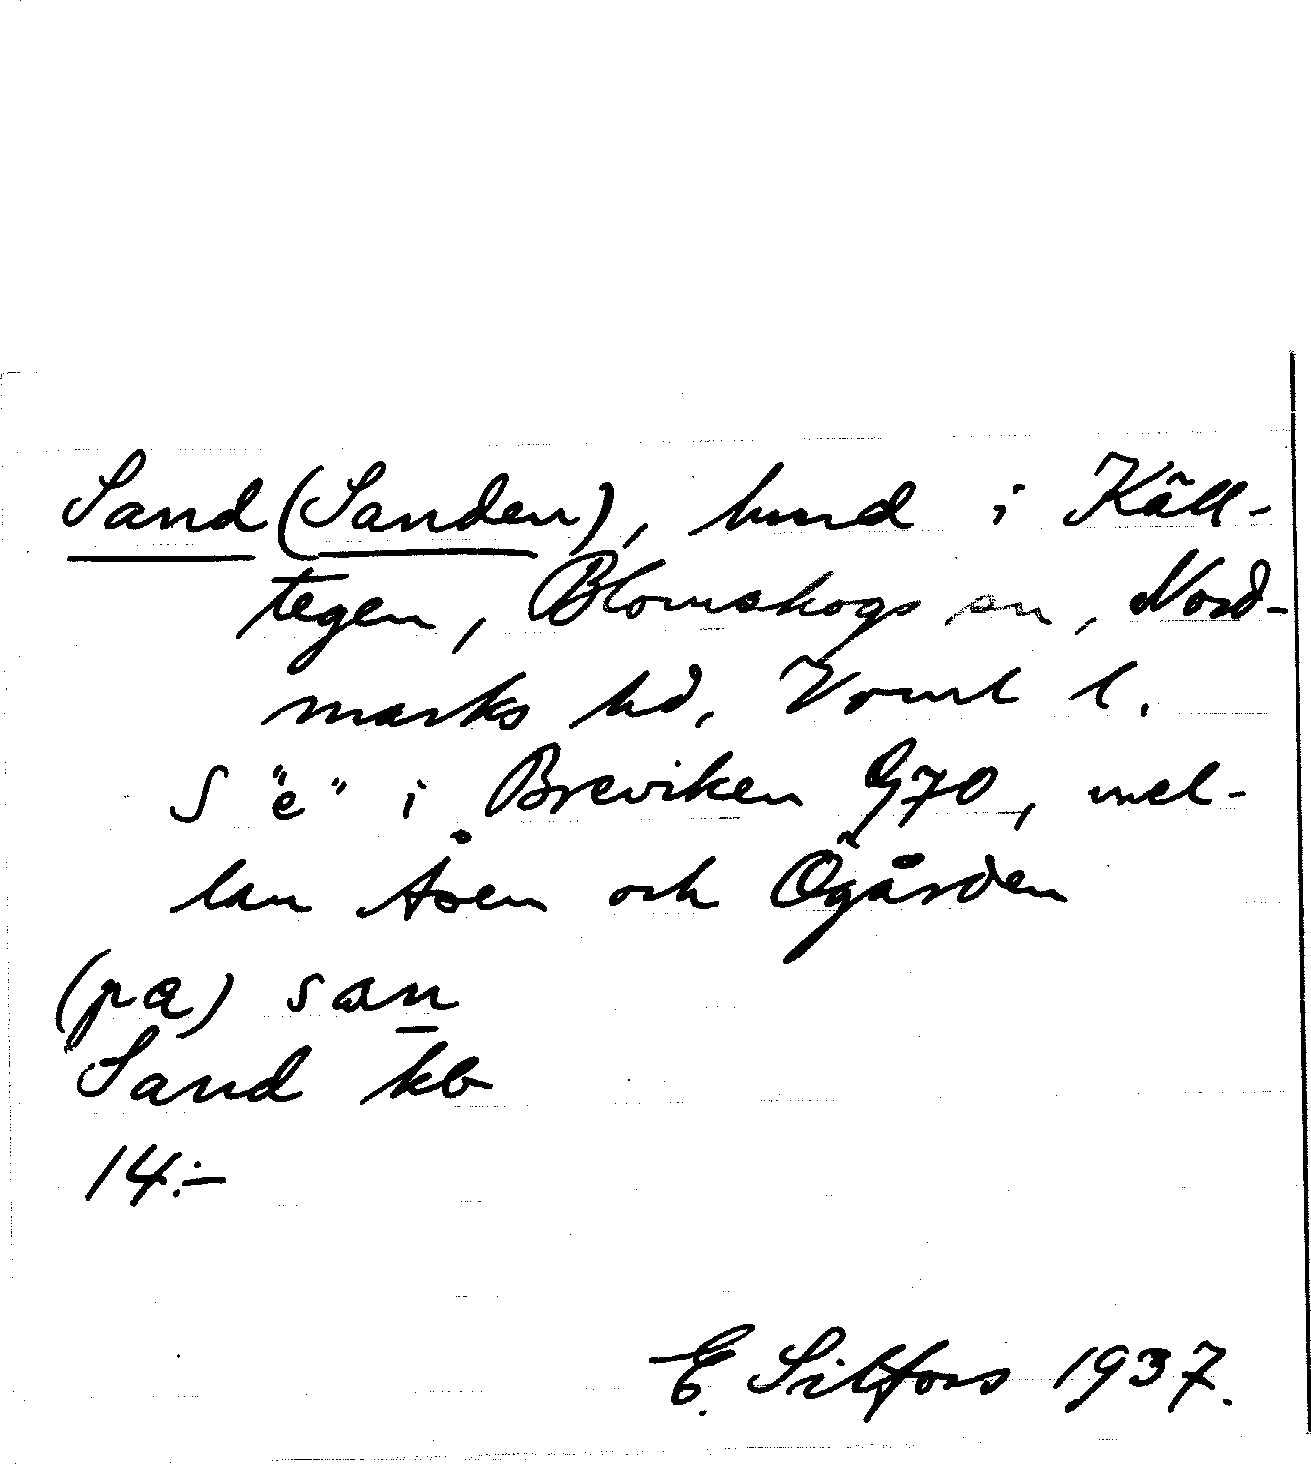 Sand (Sanden), hmd i Käll-
tegen, Blomskogs sn, Nord-
marks hd, Vrml l.
S "e" i Breviken G70, mel-
lan Åsen och Ögården
(pa) san
Sand kb
14:-
E. Silfors 1937.